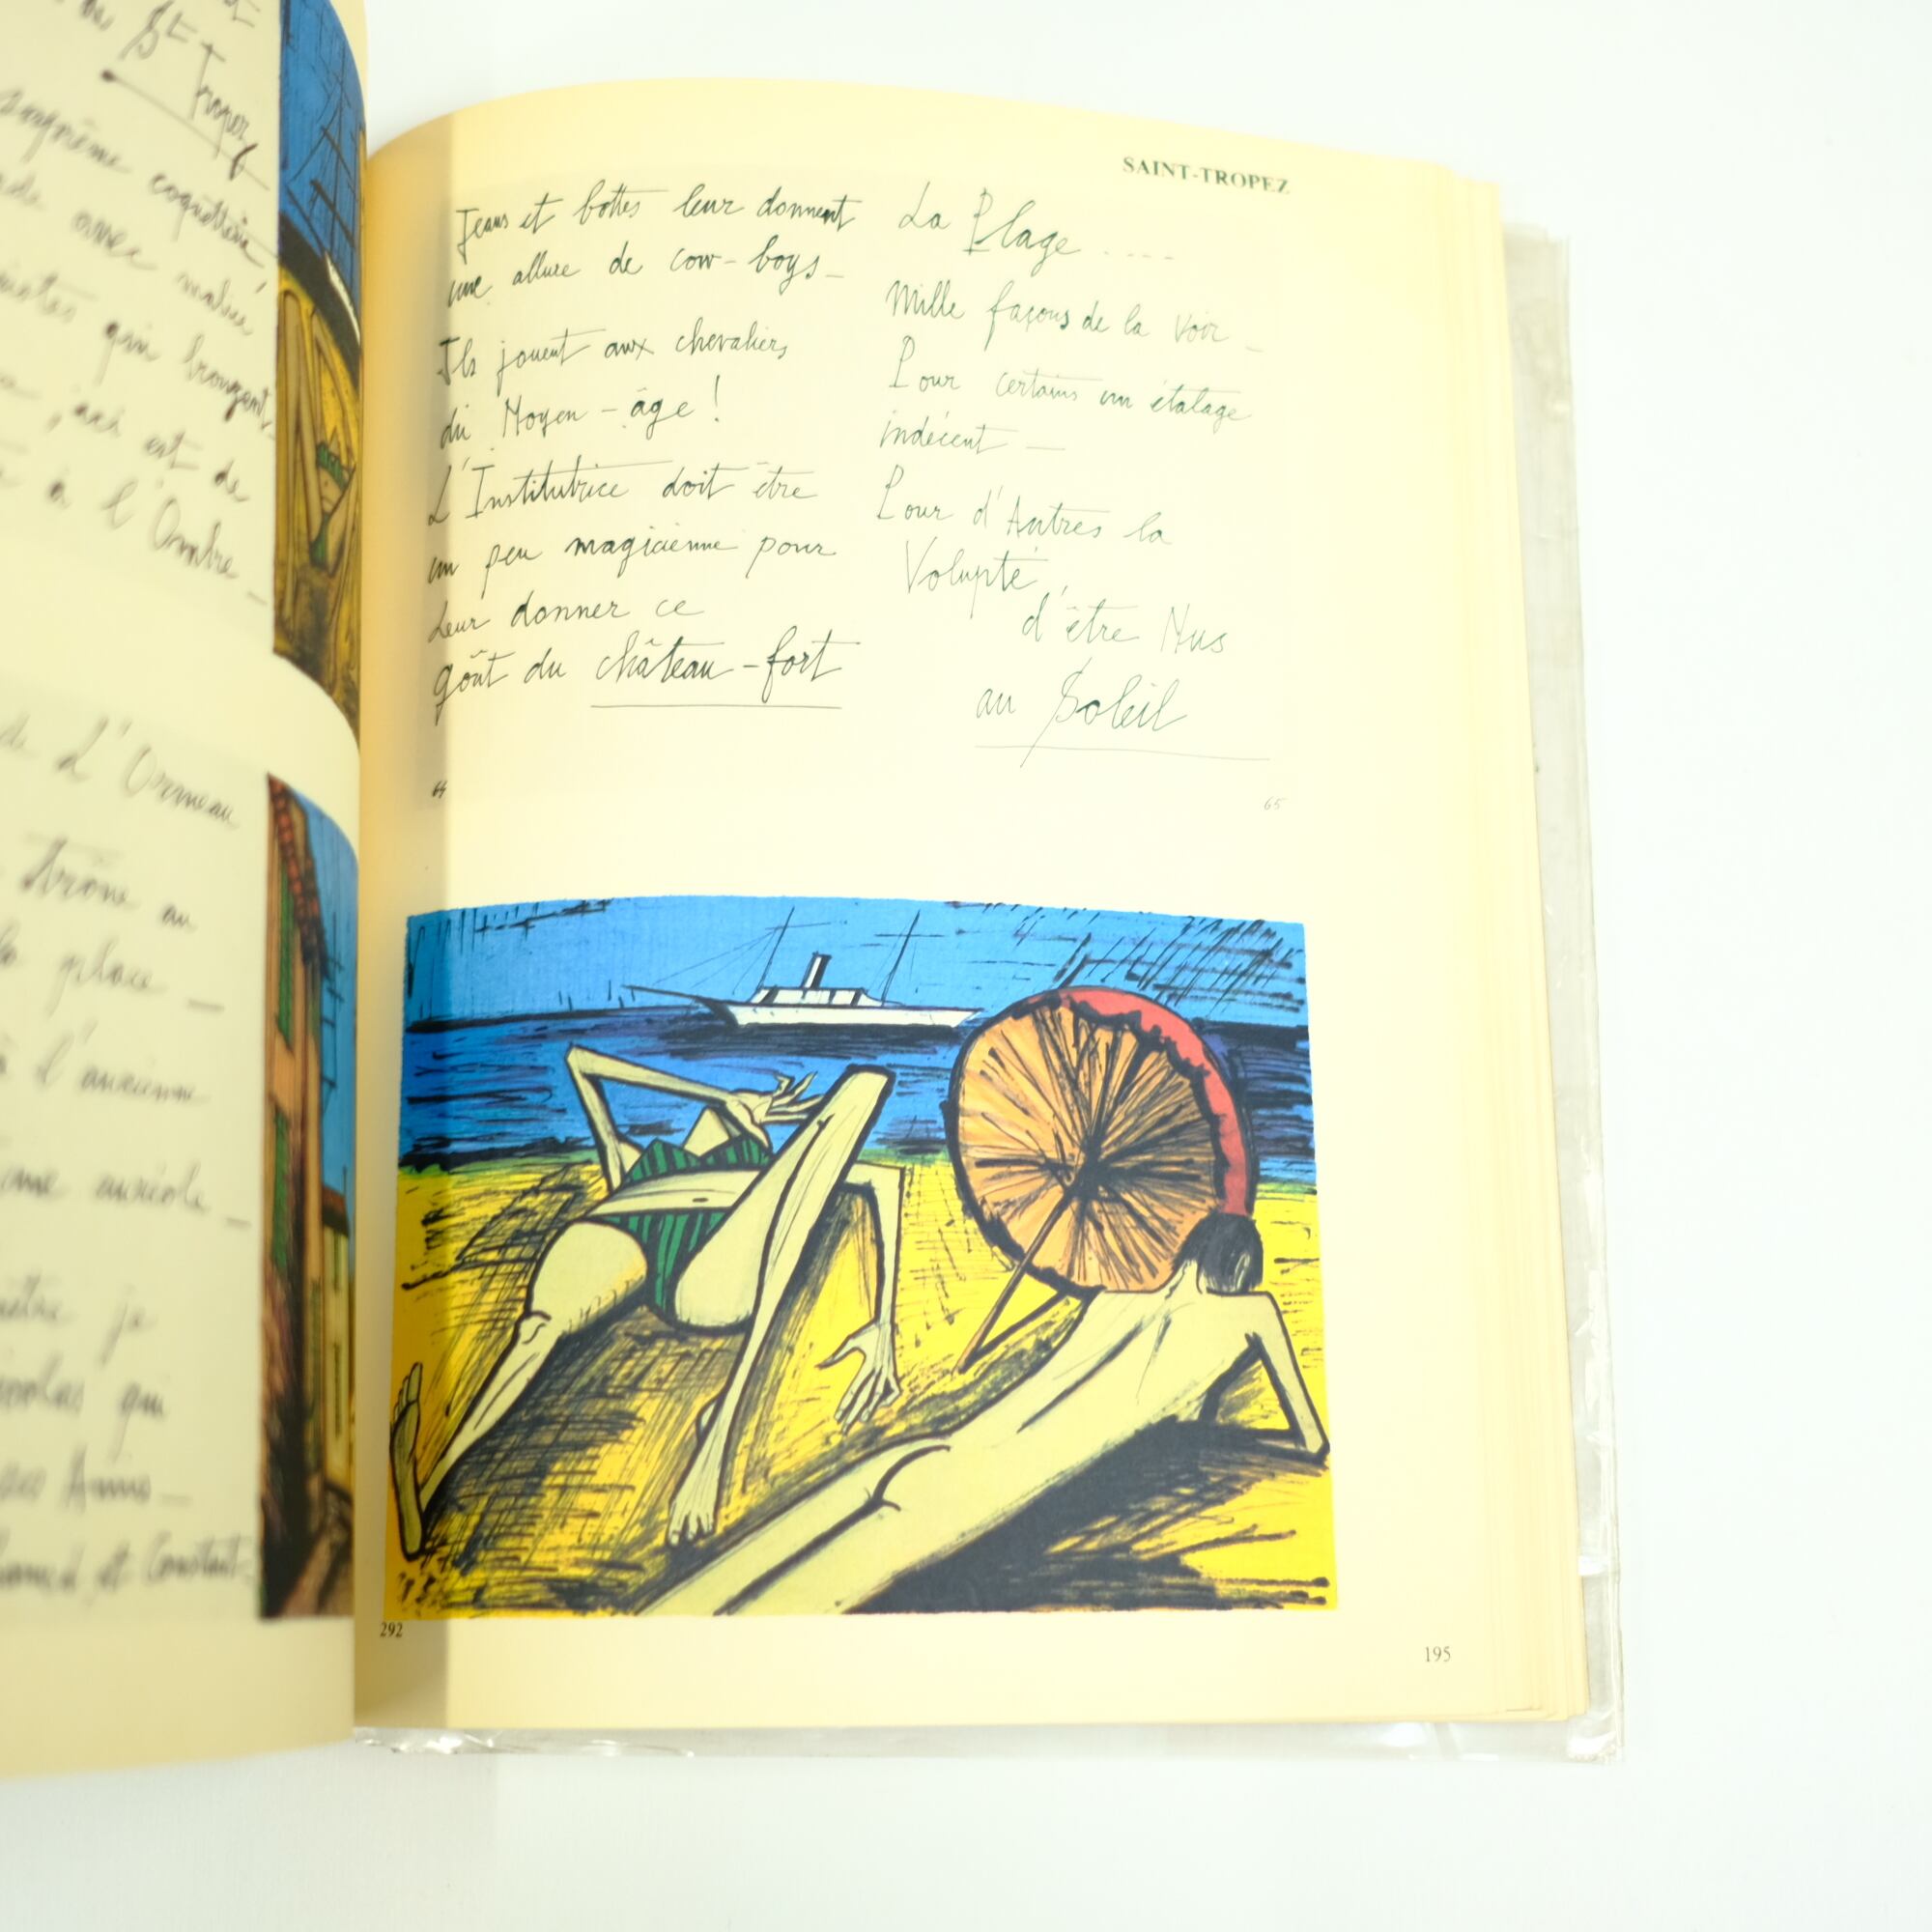 St Tropez
suprême coquetterie,
avec
qui bronzent,
ici est de
à l'Ombre_
de L'Ormeau
trône au
place_
à l'ancienne
je
qui
et Constant
SAINT-TROPEZ
Jeans et bottes leur donnent
une allure de cow-boys_
Ils jouent aux chevaliers
du Moyen-âge!
L'Institutrice doit être
un peu magicienne pour
Leur donner ce
goût du château-fort
64
La Plage ....
Mille façons de la voir_
Pour certains un étalage
indécent_
Pour d'Autres la
Volupté,
d'être Nus
au Soleil
65
292
195